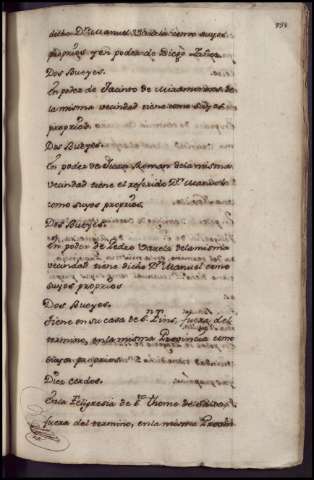 dicho Dn. Manuel Varela como suyos
proprios y en poder de Diego Yañez
Dos Bueyes.
En poder de Jacinto de Miramontes de
la misma vecindad tiene como suyos
proprios.
Dos Bueyes.
En poder de Juan Roman de la misma
vecindad tiene el referido Dn. Manuel
como suyos proprios.
Dos Bueyes.
En poder de Pedro Varela de la misma
vecindad tiene dicho Dn. Manuel como
suyos proprios
Dos Bueyes.
Tiene en su casa de fuera del
termino, en la misma Provincia como
suyos proprios
Diez cerdos.
En la Feligresia de Sto. Thome de
fuera del termino, en la misma Provin